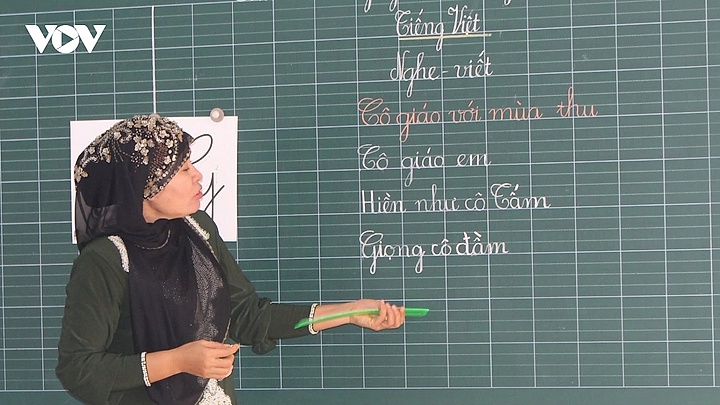 VOV
Tiếng Việt
Nghe - viết
Cô giáo với mùa thu
Cô giáo em
Hiền như cô Tấm
Giọng cô đầm